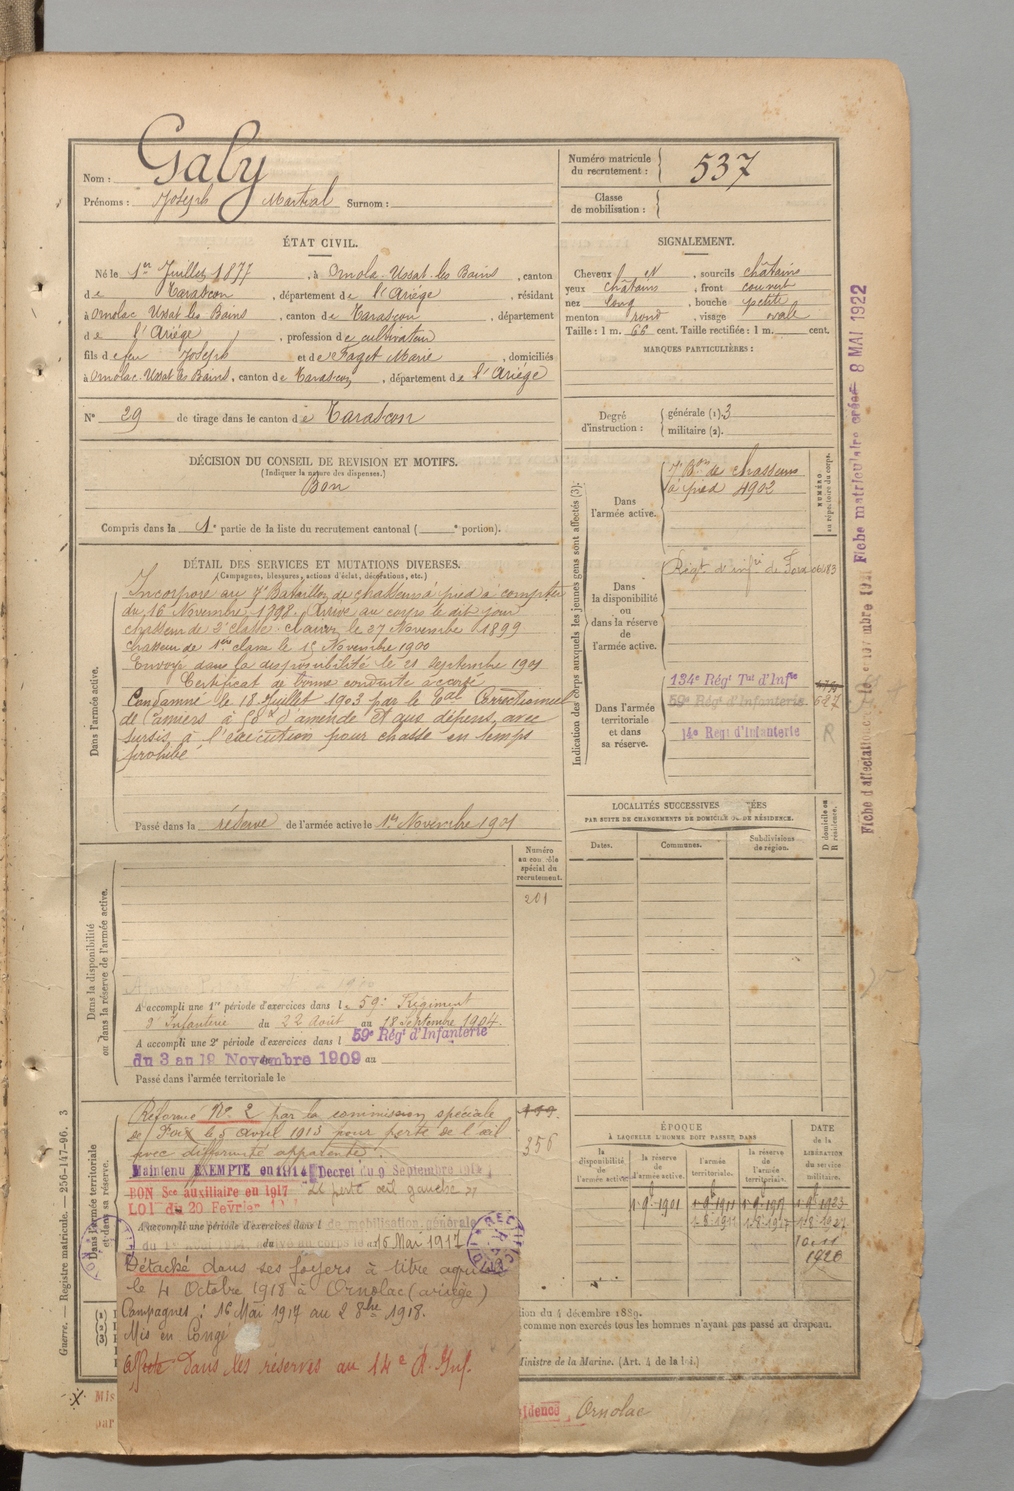 Nom : Galy
Prénoms : Joseph Martial Surnom :
Numéro matricule du recrutement : 537
Classe de mobilisation :
ÉTAT CIVIL.
Né le 1er Juillet 1877, à Ornolac Ussat-les Bains, canton
de Tarascon, département de l'Ariége, résidant
à Ornolac Ussat les Bains, canton de Tarascon, département
de l'Ariége, profession de cultivateur
fils de feu Joseph et de Faget Marie, domiciliés
à Ornolac-Ussat les Bains, canton de Tarascon, département de l'Ariége
N° 29 de tirage dans le canton de Tarascon
SIGNALEMENT.
Cheveux N, sourcils châtains
yeux châtains, front couvert
nez long, bouche petite
menton rond, visage ovale
Taille : 1 m. 66 cent. Taille rectifiée : 1 m. cent.
MARQUES PARTICULIÈRES :
Degré d'instruction : générale (1). 3
militaire (2).
DÉCISION DU CONSEIL DE REVISION ET MOTIFS.
(Indiquer la nature des dispenses.)
Bon
Compris dans la 1e partie de la liste du recrutement cantonal ( e portion).
DÉTAIL DES SERVICES ET MUTATIONS DIVERSES.
(Campagnes, blessures, actions d'éclat, décorations, etc.)
Dans l'armée active.
Incorporé au 7e Bataillon de chasseurs à pied à compter
du 16 Novembre 1898. Arrivé au corps le dit jour
chasseur de 2e classe. Clairon le 27 Novembre 1899
chasseur de 1ère classe le 15 Novembre 1900
Envoyé dans la disponibilité le 21 septembre 1901
Certificat de bonne conduite accordé
Condamné le 18 Juillet 1903 par le Tbal Correctionnel
de Pamiers à d'amende et aux dépens, avec
sursis à l'exécution pour chasse en temps
prohibé
Passé dans la réserve de l'armée active le 1er Novembre 1901
Indication des corps auxquels les jeunes gens sont affectés (3).
NUMÉRO au répertoire du corps.
Dans l'armée active.
7e Bon de chasseurs
à pied 4902
Dans la disponibilité ou dans la réserve de l'armée active.
Régt d'infrie de Foix
Dans l'armée territoriale et dans sa réserve.
134e Régt Tal d'Infie
59e Régt d'Infanterie
14e Régt d'Infanterie
R
LOCALITÉS SUCCESSIVES
PAR SUITE DE CHANGEMENTS DE DOMICILE OU DE RÉSIDENCE.
Dates. Communes. Subdivisions de région.
D domicile ou R résidence.
Numéro au contrôle spécial du recrutement.
201
Dans la disponibilité ou dans la réserve de l'armée active.
A accompli une 1re période d'exercices dans le 59e Régiment
d'Infanterie du 22 Août au 18 Septembre 1904.
A accompli une 2e période d'exercices dans l 59e Régt d'Infanterie
du 3 au 19 Novembre 1909 au
Passé dans l'armée territoriale le
Dans l'armée territoriale et dans sa réserve.
Réformé No. 2 par la commission spéciale
de Foix le 5 avril 1913 pour perte de l'œil
avec difformité apparente.
Maintenu EXEMPTÉ en 1914 Décret du 9 Septembre 1914
BON Sce auxiliaire en 1917
LOI du 20 Février
perte œil gauche
A accompli une période d'exercices dans l
de mobilisation générale
15 Mai 1917
199
356
RECTIFICATION
Détaché dans ses foyers à titre
le 4 Octobre 1918 à Ornolac (ariège)
Campagnes : 16 Mai 1917 au 2 8bre 1918.
Mis en Congé
Affecté dans les réserves au 14e R. Inf.
ÉPOQUE
À LAQUELLE L'HOMME DOIT PASSER DANS
la disponibilité de l'armée active
la réserve de l'armée active.
l'armée territoriale.
la réserve de l'armée territoriale.
DATE de la LIBÉRATION du service militaire.
1920
du 4 décembre 1889.
comme non exercés tous les hommes n'ayant pas passé au drapeau.
Ministre de la Marine. (Art. 4 de la loi.)
Ornolac
Guerre. — Registre matricule. — 256-147-96. 3
Fiche matriculaire créée 8 MAI 1922
Fiche d'affectation